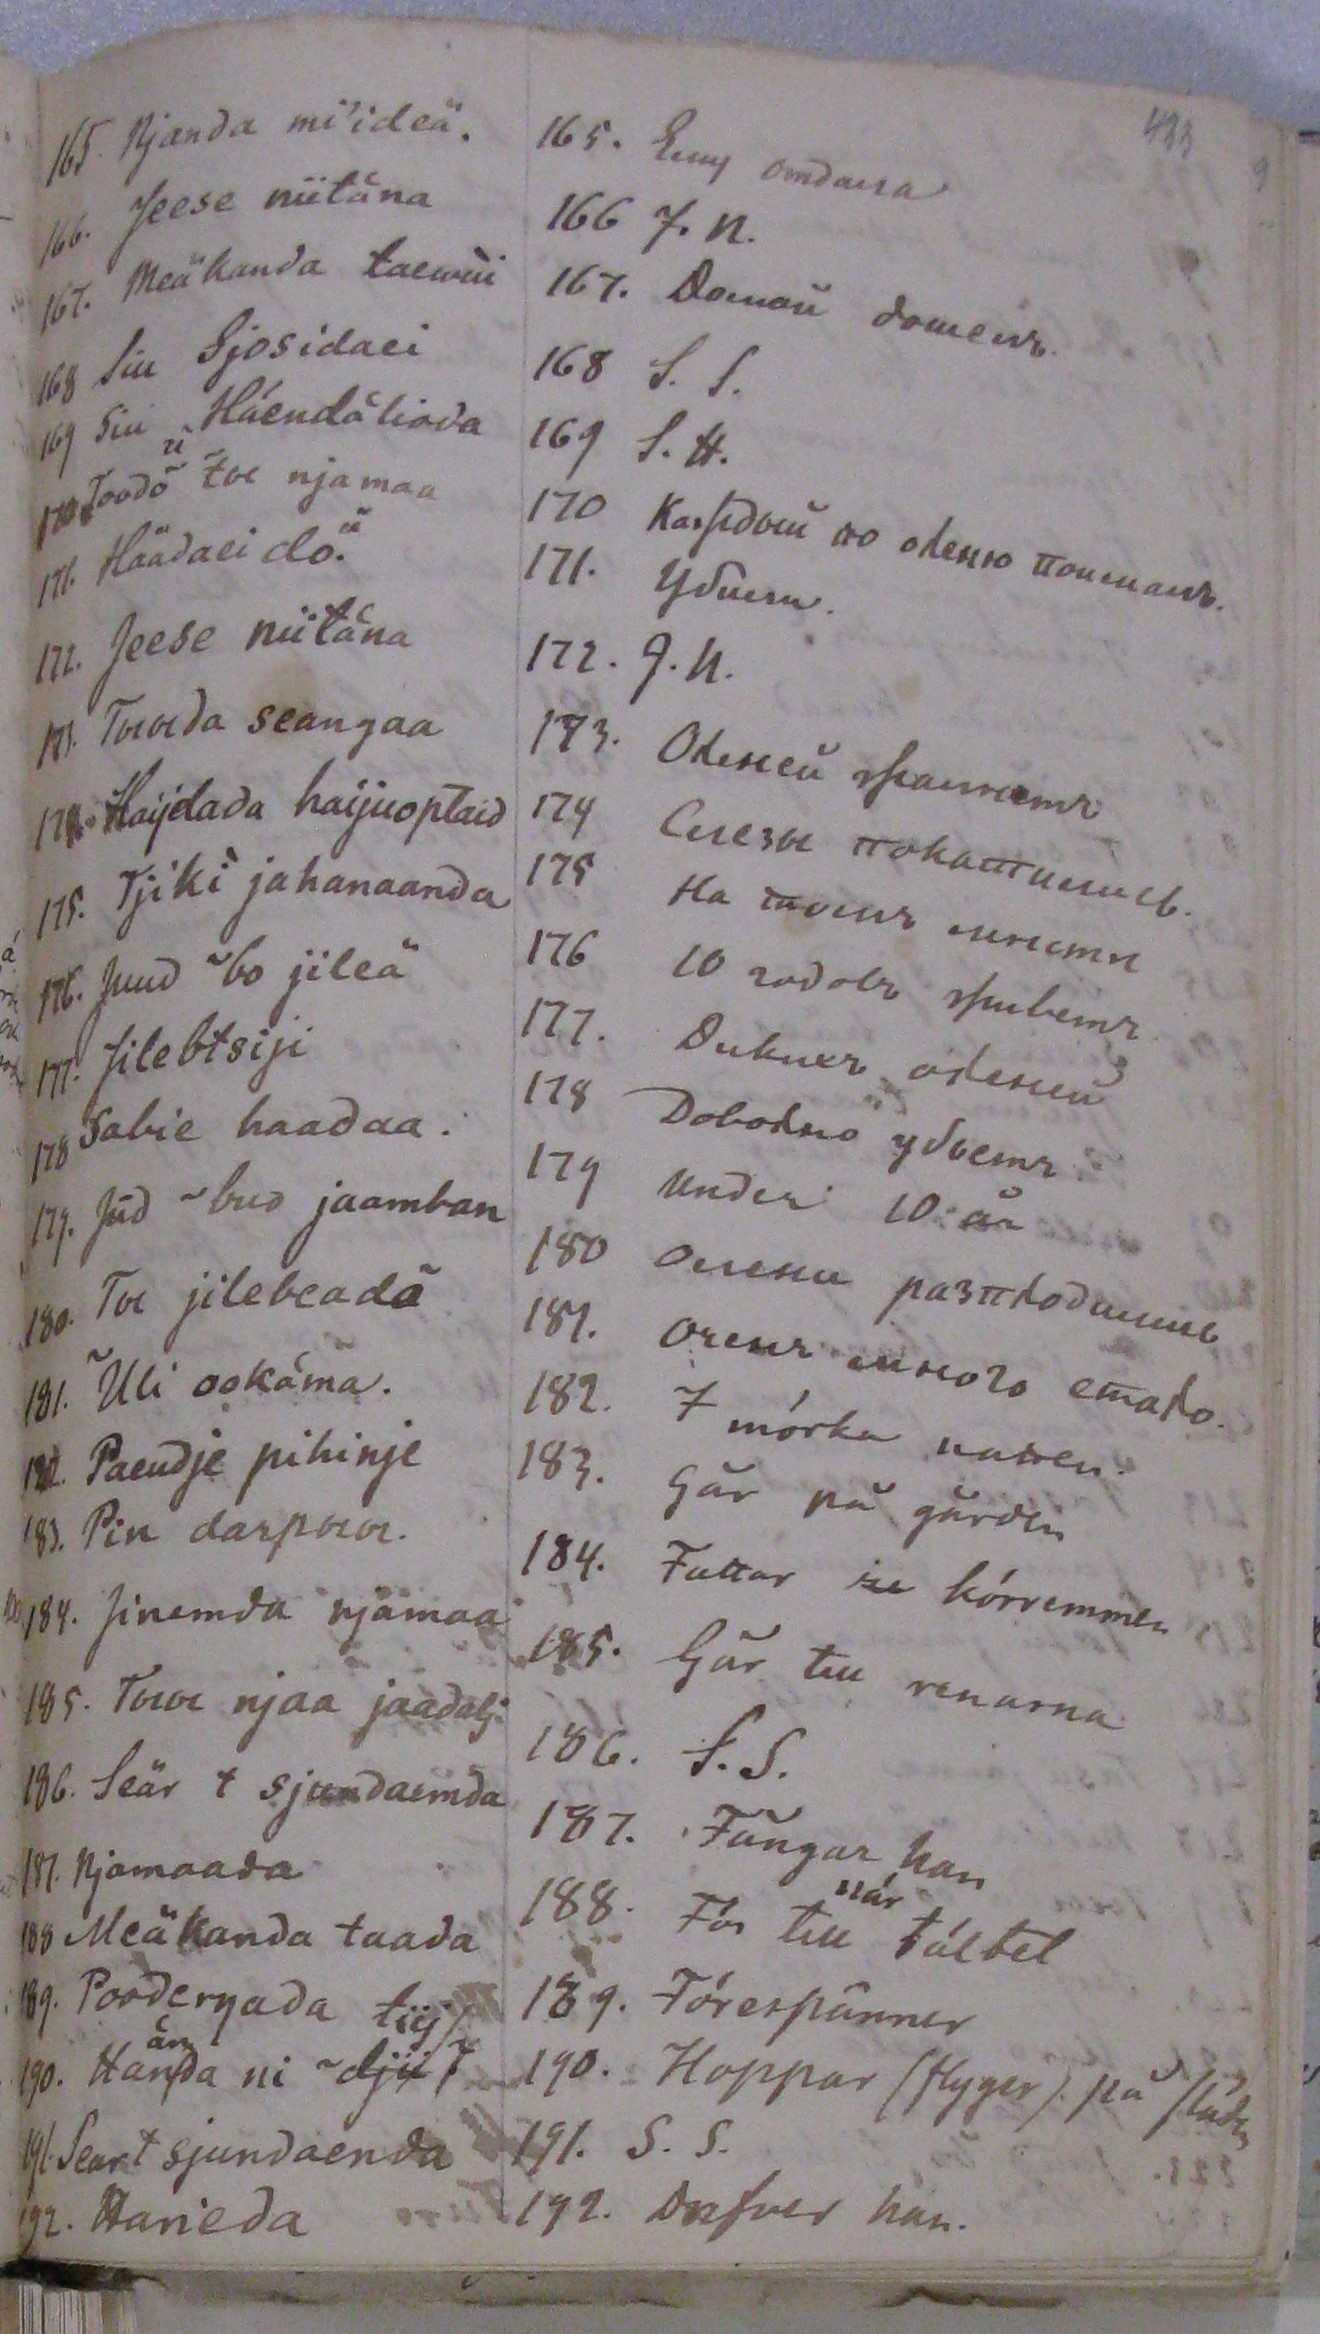 433
9
165. Njanda mi'ideä.
166. Jeese niitäna
167. Meäkanda taewüi
168 Siu Sjosidaei
169 Siu Häendäliada
170 Toodõ toe njamaa
171. Häädaei do.
172. Jeese niitäna
173. Tououda seangaa
174. Haijdada haijuoptaid
175. Tjiki jahanaanda
176. Juud ~bo jileä
177. Jilebtsiji
178 Sabie haadaa.
179. Jüd ~bud jaamban
180. Toe jilebeadã
181. Üli ookäma.
182. Paeudje pihinje
183. Pin darpoor.
184. Jinemda njamaa
185. Toroe njaa jaadalj
186. Seär t sjundaemda
187. Njamaada
188 Meäkanda taada
189. Pooderŋada tiij
190. Handa ni ~djii
191. Seart sjundaenda
192. Harieda
165. Ему отдала
166 J. N.
167. Домой дошелъ.
168 S. S.
169 S. H.
170 Каждый по оленю поималъ.
171. Убили.
172. J. N.
173. Оленей жалѣетъ
174 Слезы покатились.
175 На томъ мѣстѣ
176 10 годовъ живетъ
177. Дикихъ оленей
178 Довольно убьетъ
179 Under 10 år
180 Олени разплодились
181. Очень много стало.
182. I mörka natten.
183. Går på gården
184. Fattar körremmen
185. Går till renarna
186. S. S.
187. Fångar han
när
188. För till tältet
189. Förespänner
190. Hoppar (flyger) på släden
191. S. S.
192. Drifver han.